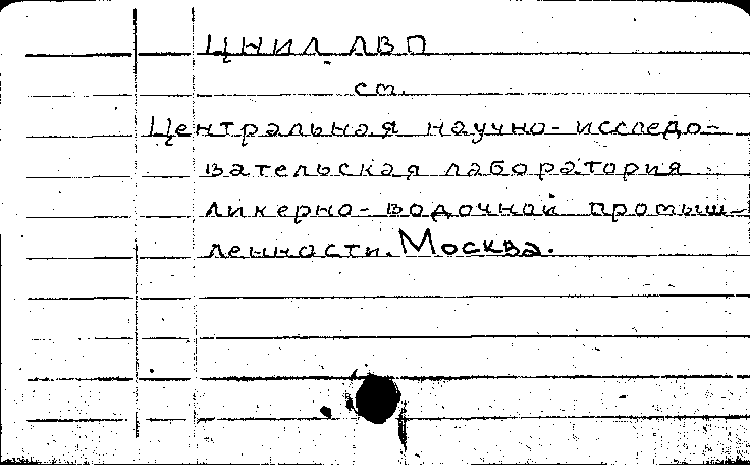 ЦНИЛ ЛВП
см.
Центральная научно-исследо-
вательская лаборатория
ликерно-водочной промыш-
ленности. Москва.